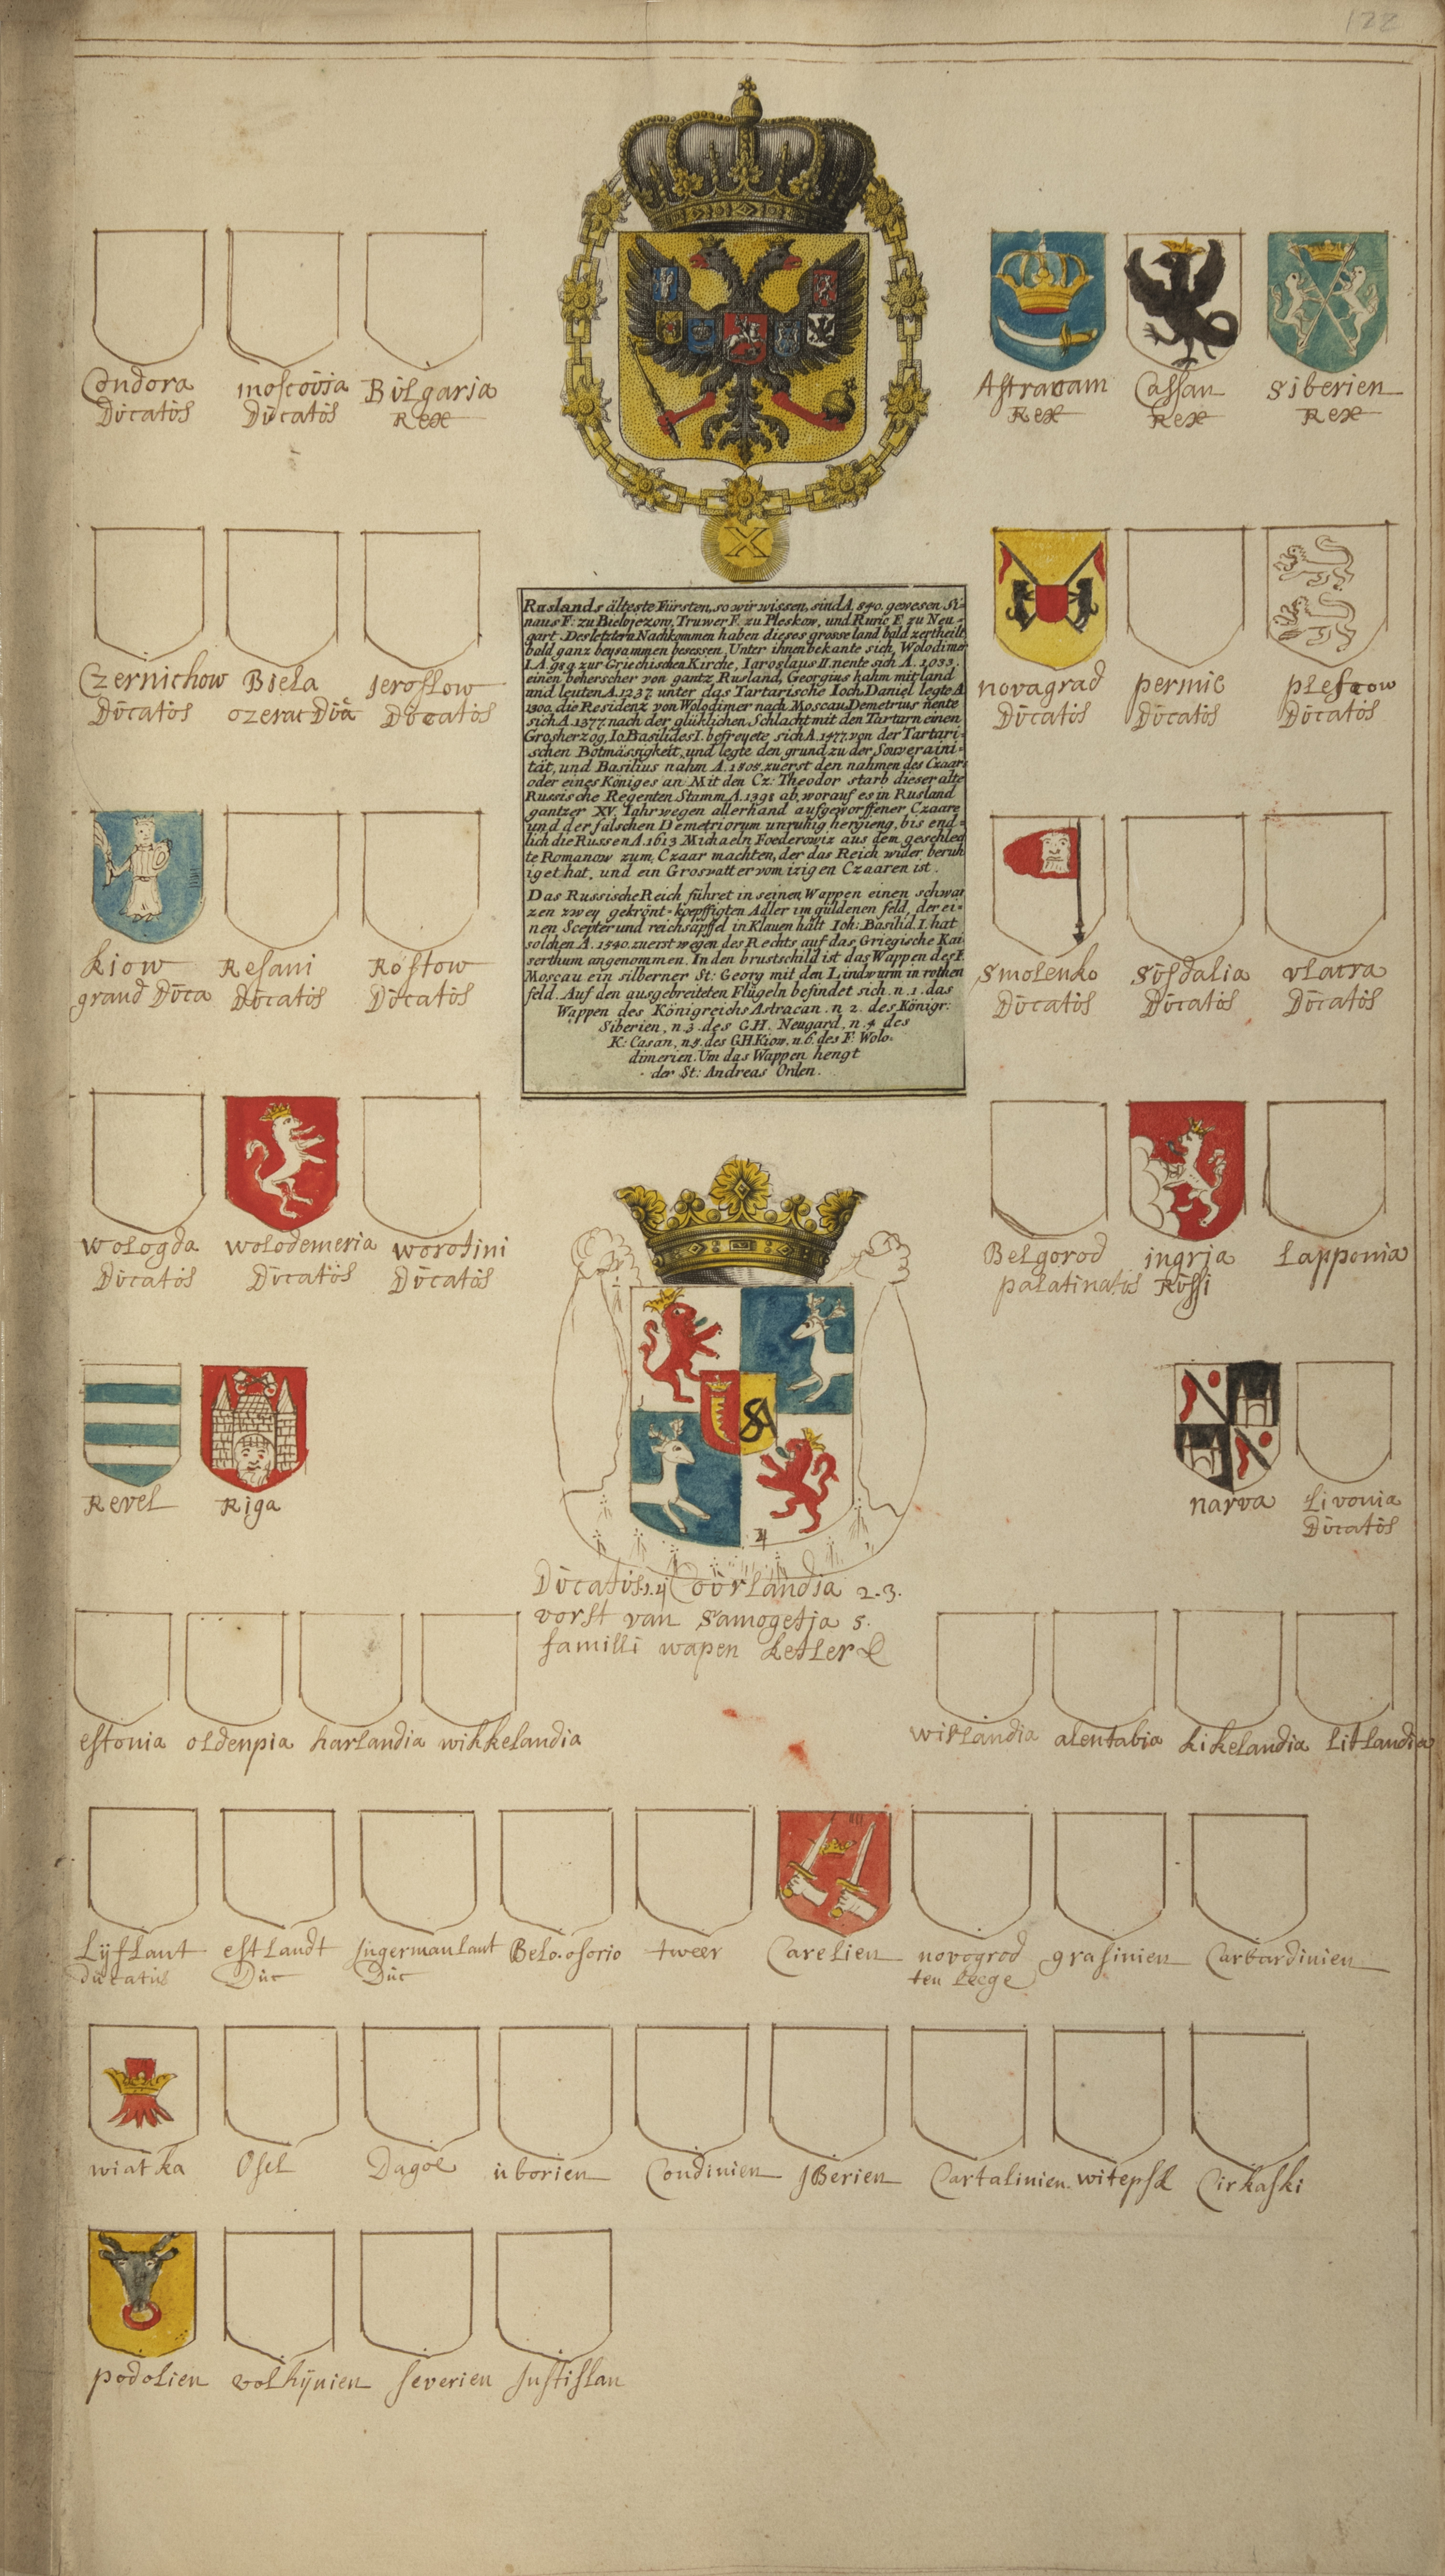 122
X
Condora
Ducatus
moscovia
Ducatus
Bulgaria
Rex
Astracam
Rex
Cassan
Rex
Siberien
Rex
Czernichow
Ducatus
Biela
ozerac Dua
Jeroslow
Ducatus
novagrad
Ducatus
permie
Ducatus
plescow
Ducatus
Ruslands älteste Fürsten, so wir wissen, sind A. 840. gewesen Si=
naus F: zu Bielojezow, Truwer F. zu Pleskow, und Ruric F. zu Neu=
gart. Des letztern Nachkommen haben dieses grosse land bald zertheilt
bald ganz beysammen besessen. Unter ihnen bekante sich Wolodimer
I. A. 989. zur Griechischen Kirche, Iaroslaus II. nente sich A. 1033.
einen beherscher von gantz Rusland, Georgius kahm mit land
und leuten A. 1237. unter das Tartarische Ioch. Daniel legte A
1300. die Residenz von Wolodimer nach Moscau. Demetrius nente
sich A. 1377. nach der glüklichen Schlacht mit den Tartarn einen
Grosherzog, Io. Basilides I. befreyete sich A. 1477. von der Tartari=
schen Botmässigkeit, und legte den grund zu der Souveraini=
tät, und Basilius nahm A. 1505. zuerst den nahmen des Czaars
oder eines Königes an. Mit den Cz: Theodor starb dieser alte
Russische Regenten Stamm A. 1598 ab, worauf es in Rusland
gantzer XV. Iahr wegen allerhand aufgeworffener Czaare
und der falschen Demetriorum unruhig hergieng, bis end=
lich die Russen A. 1613 Michaeln Foederowiz aus dem geschlech
te Romanow zum Czaar machten, der das Reich wider beruh
iget hat, und ein Grosvatter vom izigen Czaaren ist.
Das Russische Reich führet in seinen Wappen einen schwar
zen zwey gekrönt=koepffigten Adler im guldenen feld, der ei=
nen Scepter und reichsapffel in Klauen hält Ioh: Basilid. I. hat
solchen A. 1540. zuerst wegen des Rechts auf das Griegische Kai
serthum angenommen. In den brustschild ist das Wappen des F.
Moscau ein silberner St: Georg mit den Lindwurm in rothen
feld. Auf den ausgebreiteten Flügeln befindet sich. n. 1. das
Wappen des Königreichs Astracan. n. 2. des Königr:
Siberien, n. 3. des G.H. Neugard, n. 4. des
K: Casan, n. 5. des G.H. Kiow. n. 6. des F. Wolo-
dimerien. Um das Wappen hengt
der St: Andreas Orden.
Kiow
grand Duca
Resani
Ducatus
Rostow
Ducatus
Smolenko
Ducatus
Susdalia
Ducatus
vlatra
Ducatus
wologda
Ducatus
wolodemeria
Ducatus
worotini
Ducatus
Belgorod
palatinatus
ingria
Russi
Lapponia
Revel
Riga
narva
Livonia
Ducatus
4
Ducatus 1.4 Courlandia 2.3.
vorst van Samogetja 5.
familli wapen Ketler
estonia
oldenpia
harlandia
wikkelandia
wirlandia
alentabia
kikelandia
litlandia
Lyflant
ducatus
estlandt
Duc
Ingermanlant
Duc
Belo.osorio
tweer
Carelien
novogrod
ten leege
grasinien
Carbardinien
wiatka
Osel
Dagoe
uborien
Condinien
JBerien
Cartalinien
witepsk
Cirkaski
podolien
volhynien
severien
Justislau